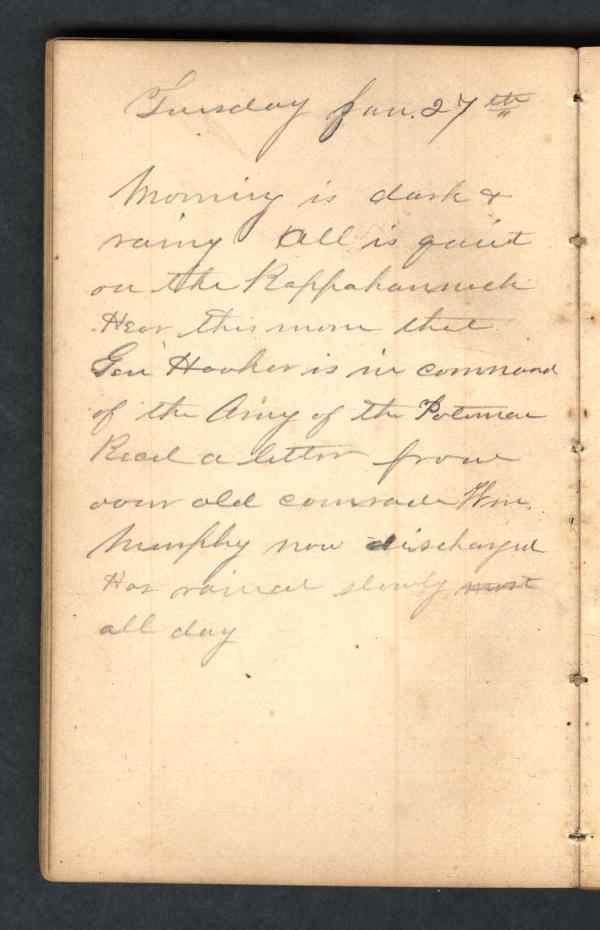 Tuesday Jan. 27th
Morning is dark &
rainy All is quiet
on the Rappahannock
Hear this morn that
Gen Hooker is in command
of the Army of the Potomac
Recd a letter from
our old comrade Wm.
Murphy now discharged
Has rained slowly most
all day